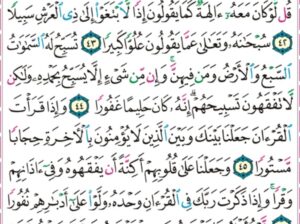 قُل لَّوْ كَانَ مَعَهُۥٓ ءَالِهَةٌ كَمَا يَقُولُونَ إِذًا لَّٱبْتَغَوْا۟ إِلَىٰ ذِى ٱلْعَرْشِ سَبِيلًا
٤٢ سُبْحَـٰنَهُۥ وَتَعَـٰلَىٰ عَمَّا يَقُولُونَ عُلُوًّا كَبِيرًا ٤٣ تُسَبِّحُ لَهُ ٱلسَّمَـٰوَٰتُ
ٱلسَّبْعُ وَٱلْأَرْضُ وَمَن فِيهِنَّ وَإِن مِّن شَىْءٍ إِلَّا يُسَبِّحُ بِحَمْدِهِۦ وَلَـٰكِن
لَّا تَفْقَهُونَ تَسْبِيحَهُمْ إِنَّهُۥ كَانَ حَلِيمًا غَفُورًا ٤٤ وَإِذَا قَرَأْتَ
ٱلْقُرْءَانَ جَعَلْنَا بَيْنَكَ وَبَيْنَ ٱلَّذِينَ لَا يُؤْمِنُونَ بِٱلْـَٔاخِرَةِ حِجَابًا
مَّسْتُورًا ٤٥ وَجَعَلْنَا عَلَىٰ قُلُوبِهِمْ أَكِنَّةً أَن يَفْقَهُوهُ وَفِىٓ ءَاذَانِهِمْ
وَقْرًا وَإِذَا ذَكَرْتَ رَبَّكَ فِى ٱلْقُرْءَانِ وَحْدَهُۥ وَلَّوْا۟ عَلَىٰٓ أَدْبَـٰرِهِمْ نُفُورًا